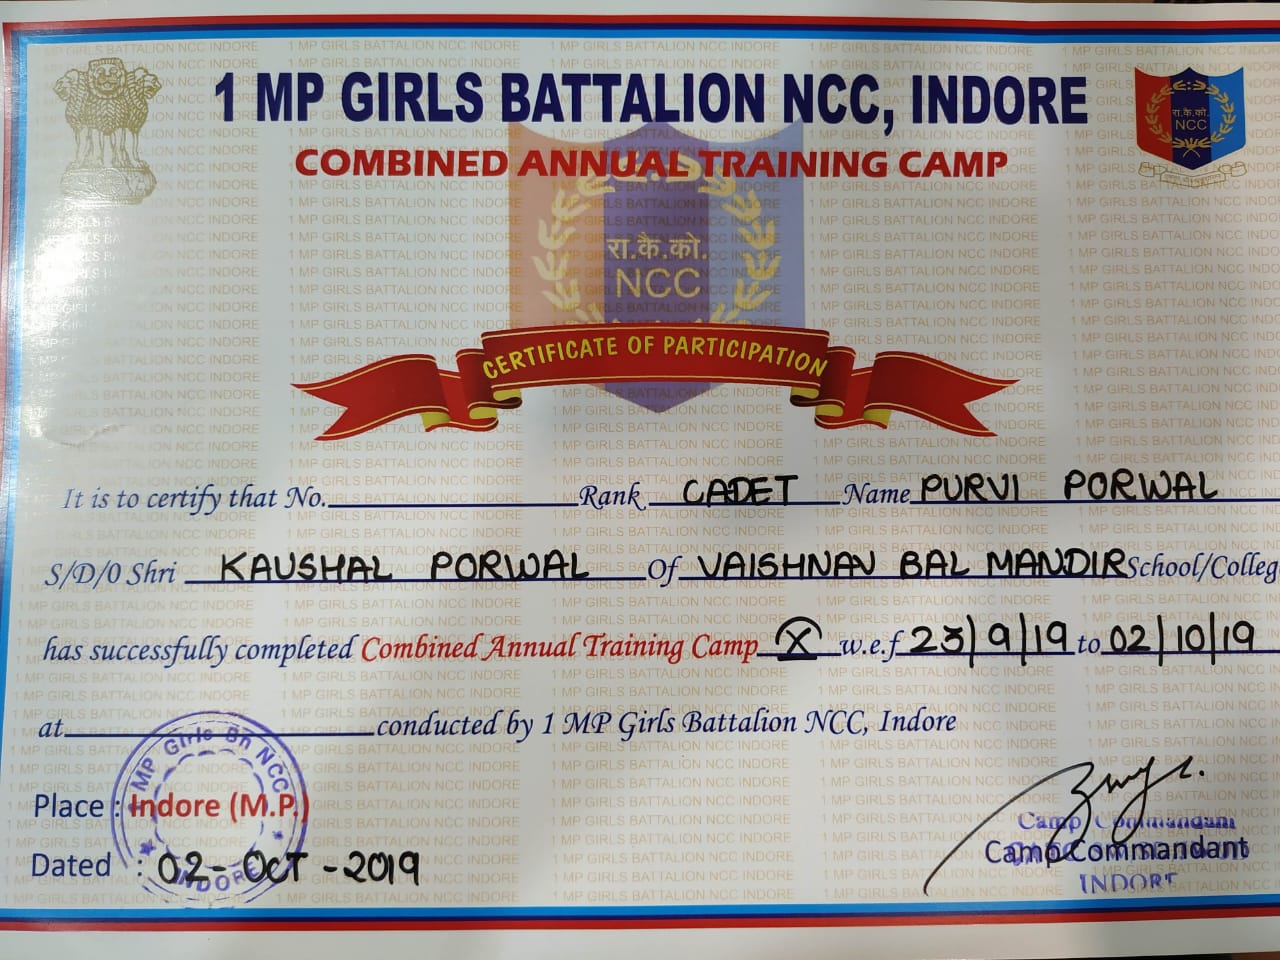 1 MP GIRLS BATTALION NCC, INDORE
COMBINED ANNUAL TRAINING CAMP
रा.कै.को.
NCC
रा.कै.को.
NCC
CERTIFICATE OF PARTICIPATION
It is to certify that No. Rank CADET Name PURVI PORWAL
S/D/O Shri KAUSHAL PORWAL Of VAISHNAV BAL MANDIR School/Colleg
has successfully completed Combined Annual Training Camp X w.e.f 23/9/19 to 02/10/19
at conducted by 1 MP Girls Battalion NCC, Indore
MP Girls Bn NCC
INDORE
Place : Indore (M.P.)
Dated : 02-OCT-2019
Camp Commandant
Camp Commandant
INDORE
1 MP GIRLS BATTALION NCC INDORE